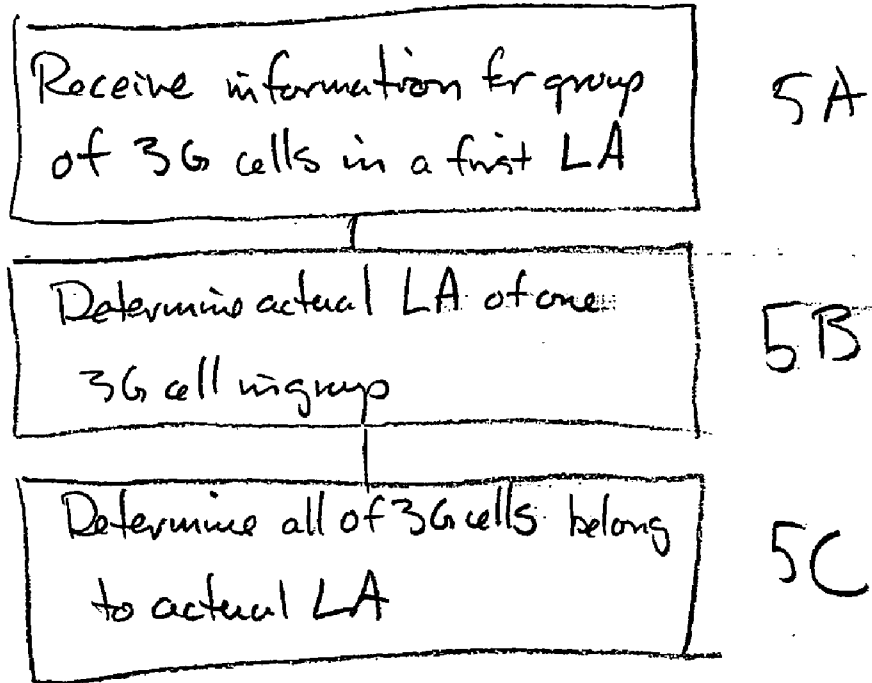 Receive information for group
of 3G cells in a first LA
5A
Determine actual LA of one
3G cell in group
5B
Determine all of 3G cells belong
to actual LA
5C